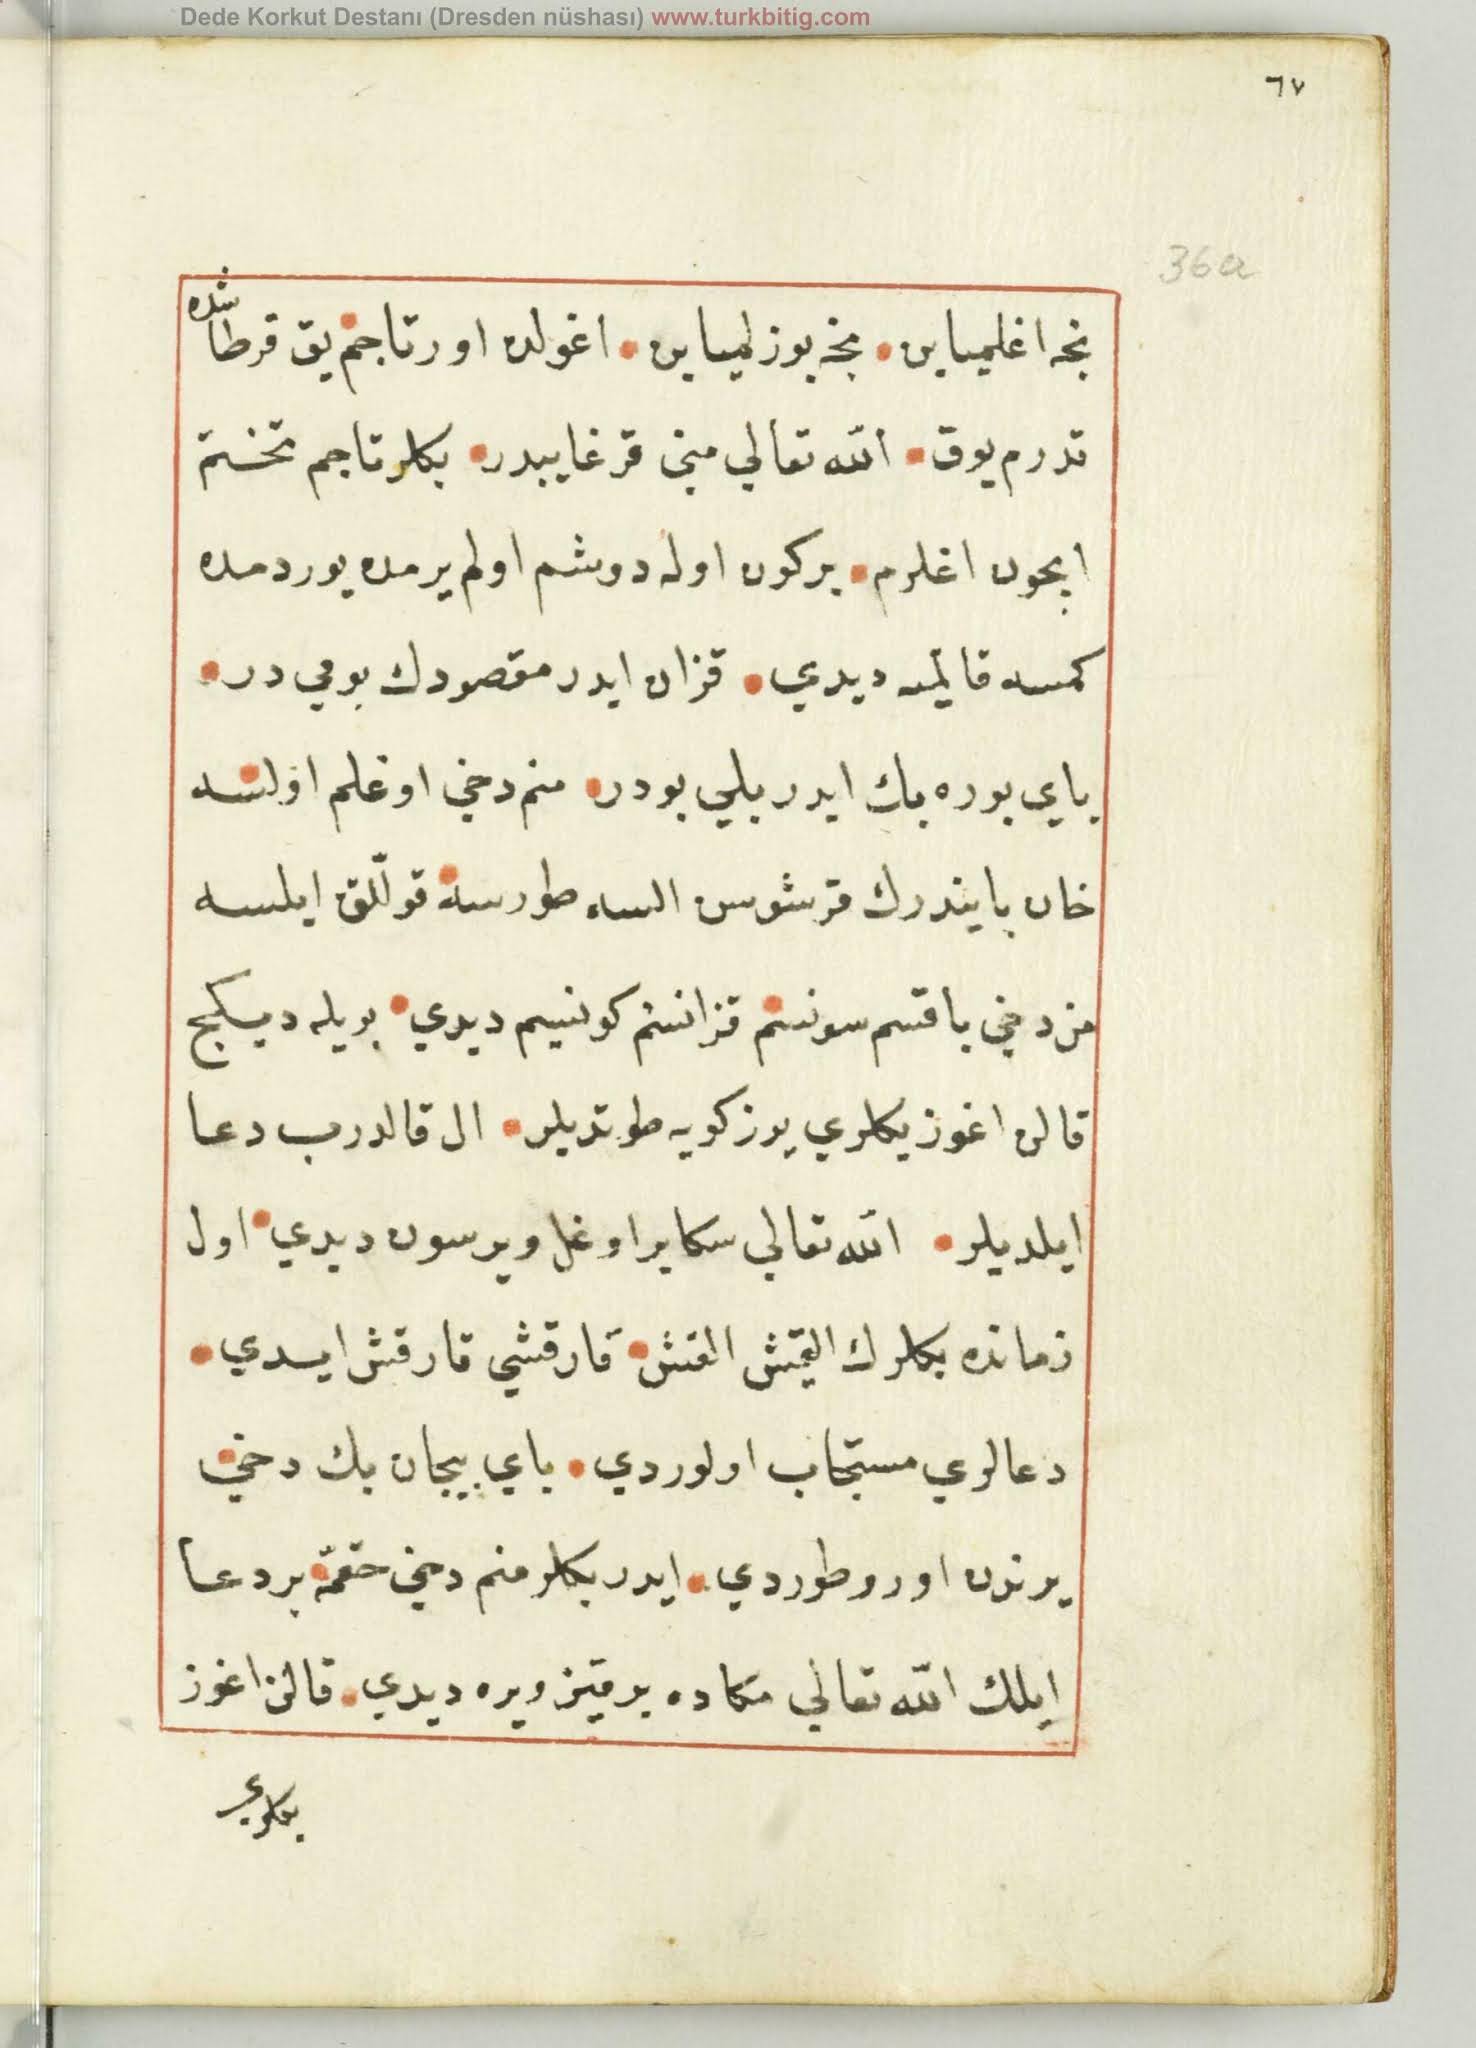 Dede Korkut Destanı (Dresden nüshası) www.turkbitig.com
٦٧
36a
نجه اغلمياين • نجه بوزلمياين • اغولدن اورتاجم يق قرطاشده
تدرم يوق • الله تعالي مني قرغايبدر • بكلر تاجم تختم
ايچون اغلرم • بركون اوله دوشم اولم يرمده يوردمده
كمسه قالميه ديدي • قزان ايدر مقصودك بومي در •
باي بوره بك ايدر بلي بودر • منم دخي اوغلم اولسه
خان بايندرك قرشوسن السه طورسه قوللق ايلسه
من دخي باقسم سونسم قزانسم كونسيم ديدي • بويله ديكج
قالن اغوز بكلري يوز كويه طوتديلر • ال قالدرب دعا
ايلديلر • الله تعالي سكا بر اوغل ويرسون ديدي • اول
زمانده بكلرك القيش القش • قارقشي قارقش ايدي •
دعالري مستجاب اولوردي • باي بيجان بك دخي
يرندن اورو طوردي • ايدر بكلر منم دخي حقمه بر دعا
ايلك الله تعالي مكا ده بر قيز ويره ديدي • قالن اغوز
بكلري